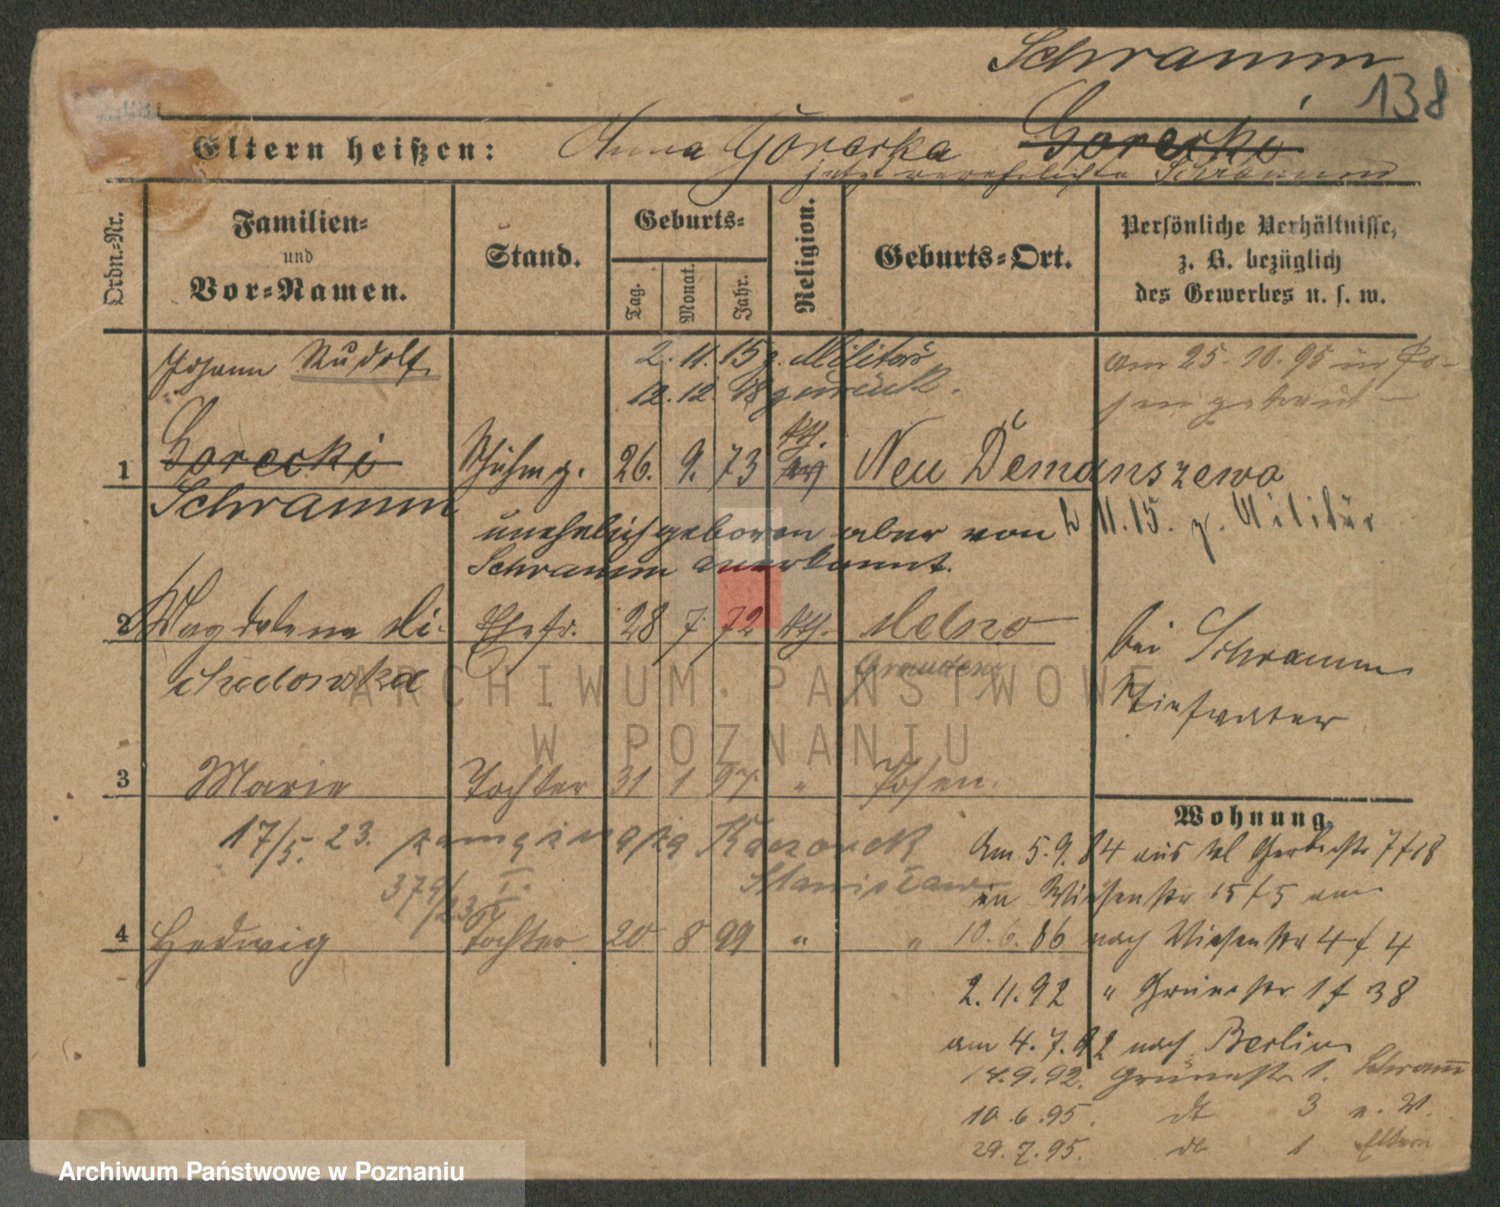 Schramm
138
Eltern heißen: Anna Gorecka Gorecki
jetzt verehelichte Schramm
Ordn.-Nr.
Familien-
und
Vor-Namen.
Stand.
Geburts-
Tag.
Monat.
Jahr.
Religion.
Geburts-Ort.
Persönliche Verhältnisse,
z. B. bezüglich
des Gewerbes u. s. w.
Johann Rudolf
2. 11. 15 z. Militär
12. 12. 18 zurück.
am 25. 10. 95 in Po-
sen getraut
1 Gorecki Schuhm. 26. 9. 73 kth. Neu Demanszewo
Schramm
unehelich geboren aber von
Schramm anerkannt.
2. 11. 15. z. Militär
2 Magdalena Ehefr. 28 7 72 kth. Melno
Graudenz
bei Schramm
Stiefvater
3 Marie Tochter 31 1 97 " Posen.
17/5. 23.
Kaczorek
Stanisław
4 Hedwig Tochter 20 8 99 " "
Wohnung.
Am 5. 9. 84 aus kl Gerberstr 7/18
in Wiesenstr 15/5 am
10. 6. 86 nach Wiesenstr 4/4
2. 11. 92 " Grünestr 1/38
am 4. 7. 92 nach Berlin
14. 9. 92. Grünestr 1. Schramm
10. 6. 95. dt 3 u. V.
29. 7. 95. dt 1 Eltern
ARCHIWUM PAŃSTWOWE
W POZNANIU
Archiwum Państwowe w Poznaniu